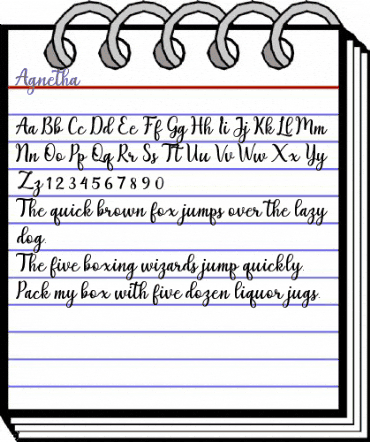 Agnetha
Aa Bb Cc Dd Ee Ff Gg Hh Ii Jj Kk Ll Mm
Nn Oo Pp Qq Rr Ss Tt Uu Vv Ww Xx Yy
Zz 1 2 3 4 5 6 7 8 9 0
The quick brown fox jumps over the lazy
dog.
The five boxing wizards jump quickly.
Pack my box with five dozen liquor jugs.